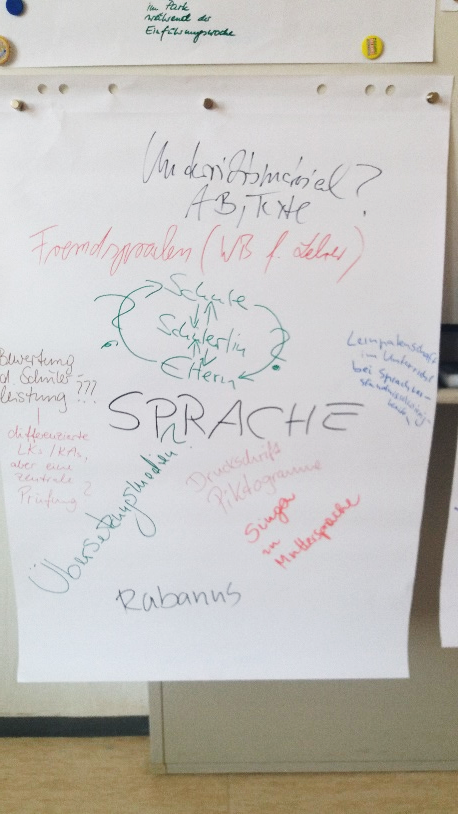 im Park
während der
Einführungswoche
Unterrichtsmaterial?
AB, Texte
Fremdsprachen (WB f. Lehrer)
Schule
Schülerin
Eltern
Bewertung
Schüler-
leistung ???
differenzierte
LKs / KAs,
aber eine
zentrale
Prüfung?
Lernpatenschaft
im Unterricht
bei Sprachver-
ständnisschwierig-
keiten
SPRACHE
Übersetzungsmedien
Druckschrift
Piktogramme
Singen
in
Muttersprache
Rabanus